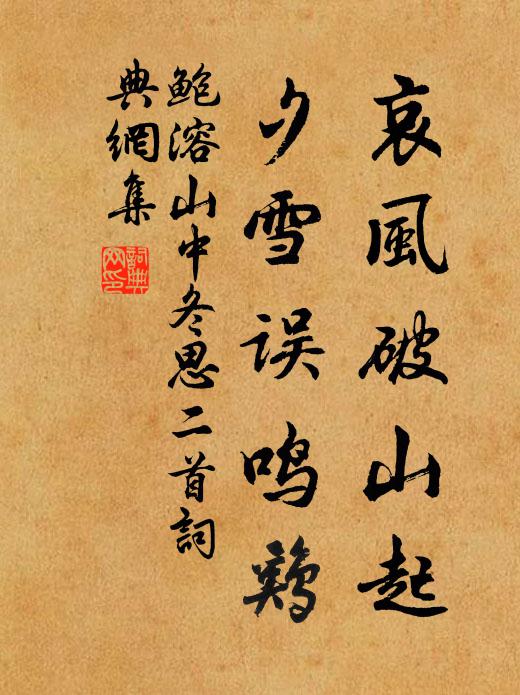 哀風破山起
夕雪误鸣鷄
鲍溶山中冬思二首詞
典網集
詞典
网印